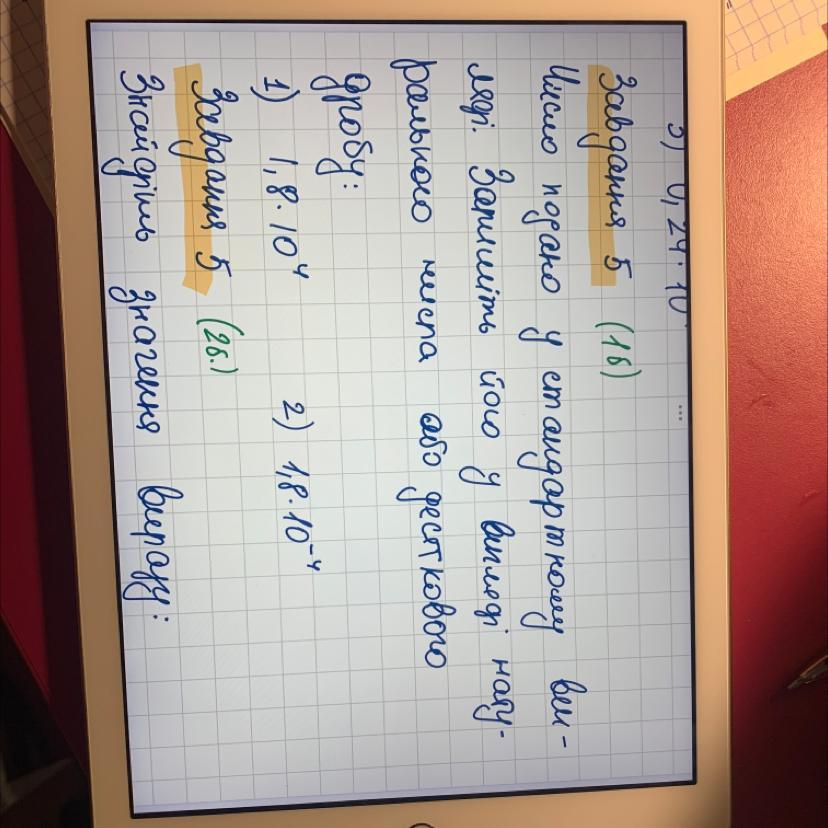 3) 0,24 · 10
Завдання 5 (1б)
Число подано у стандартному ви-
ляді. Запишіть його у вигляді нату-
рального числа або десяткового
дробу:
1) 1,8 · 10⁴ 2) 1,8 · 10⁻⁴
Завдання 5 (2б.)
Знайдіть значення виразу: